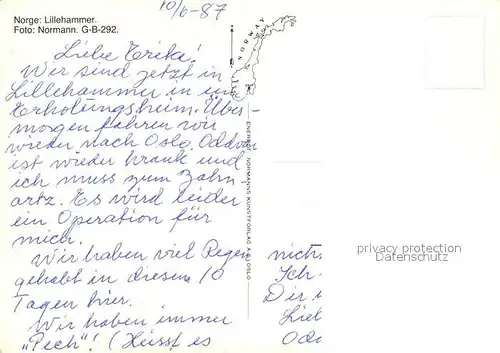 Norge: Lillehammer.
Foto: Normann. G-B-292.
10/6-87
NORWAY
Liebe Erika!
Wir sind jetzt in
Lillehammer in ein
Erholungsheim. Über-
morgen fahren wir
wieder nach Oslo. Oddvar
ist wieder krank und
ich muss zum Zahn
artz. Es wird leider
ein Operation für
mich.
Wir haben viel Regen
gehabt in diesen 10
Tagen hier.
Wir haben immer
„Pech"! (Heisst es
nicht
Ich
Dir
Lieb
Odd
ENERETT: NORMANNS KUNSTFORLAG A/S OSLO
privacy protection
Datenschutz